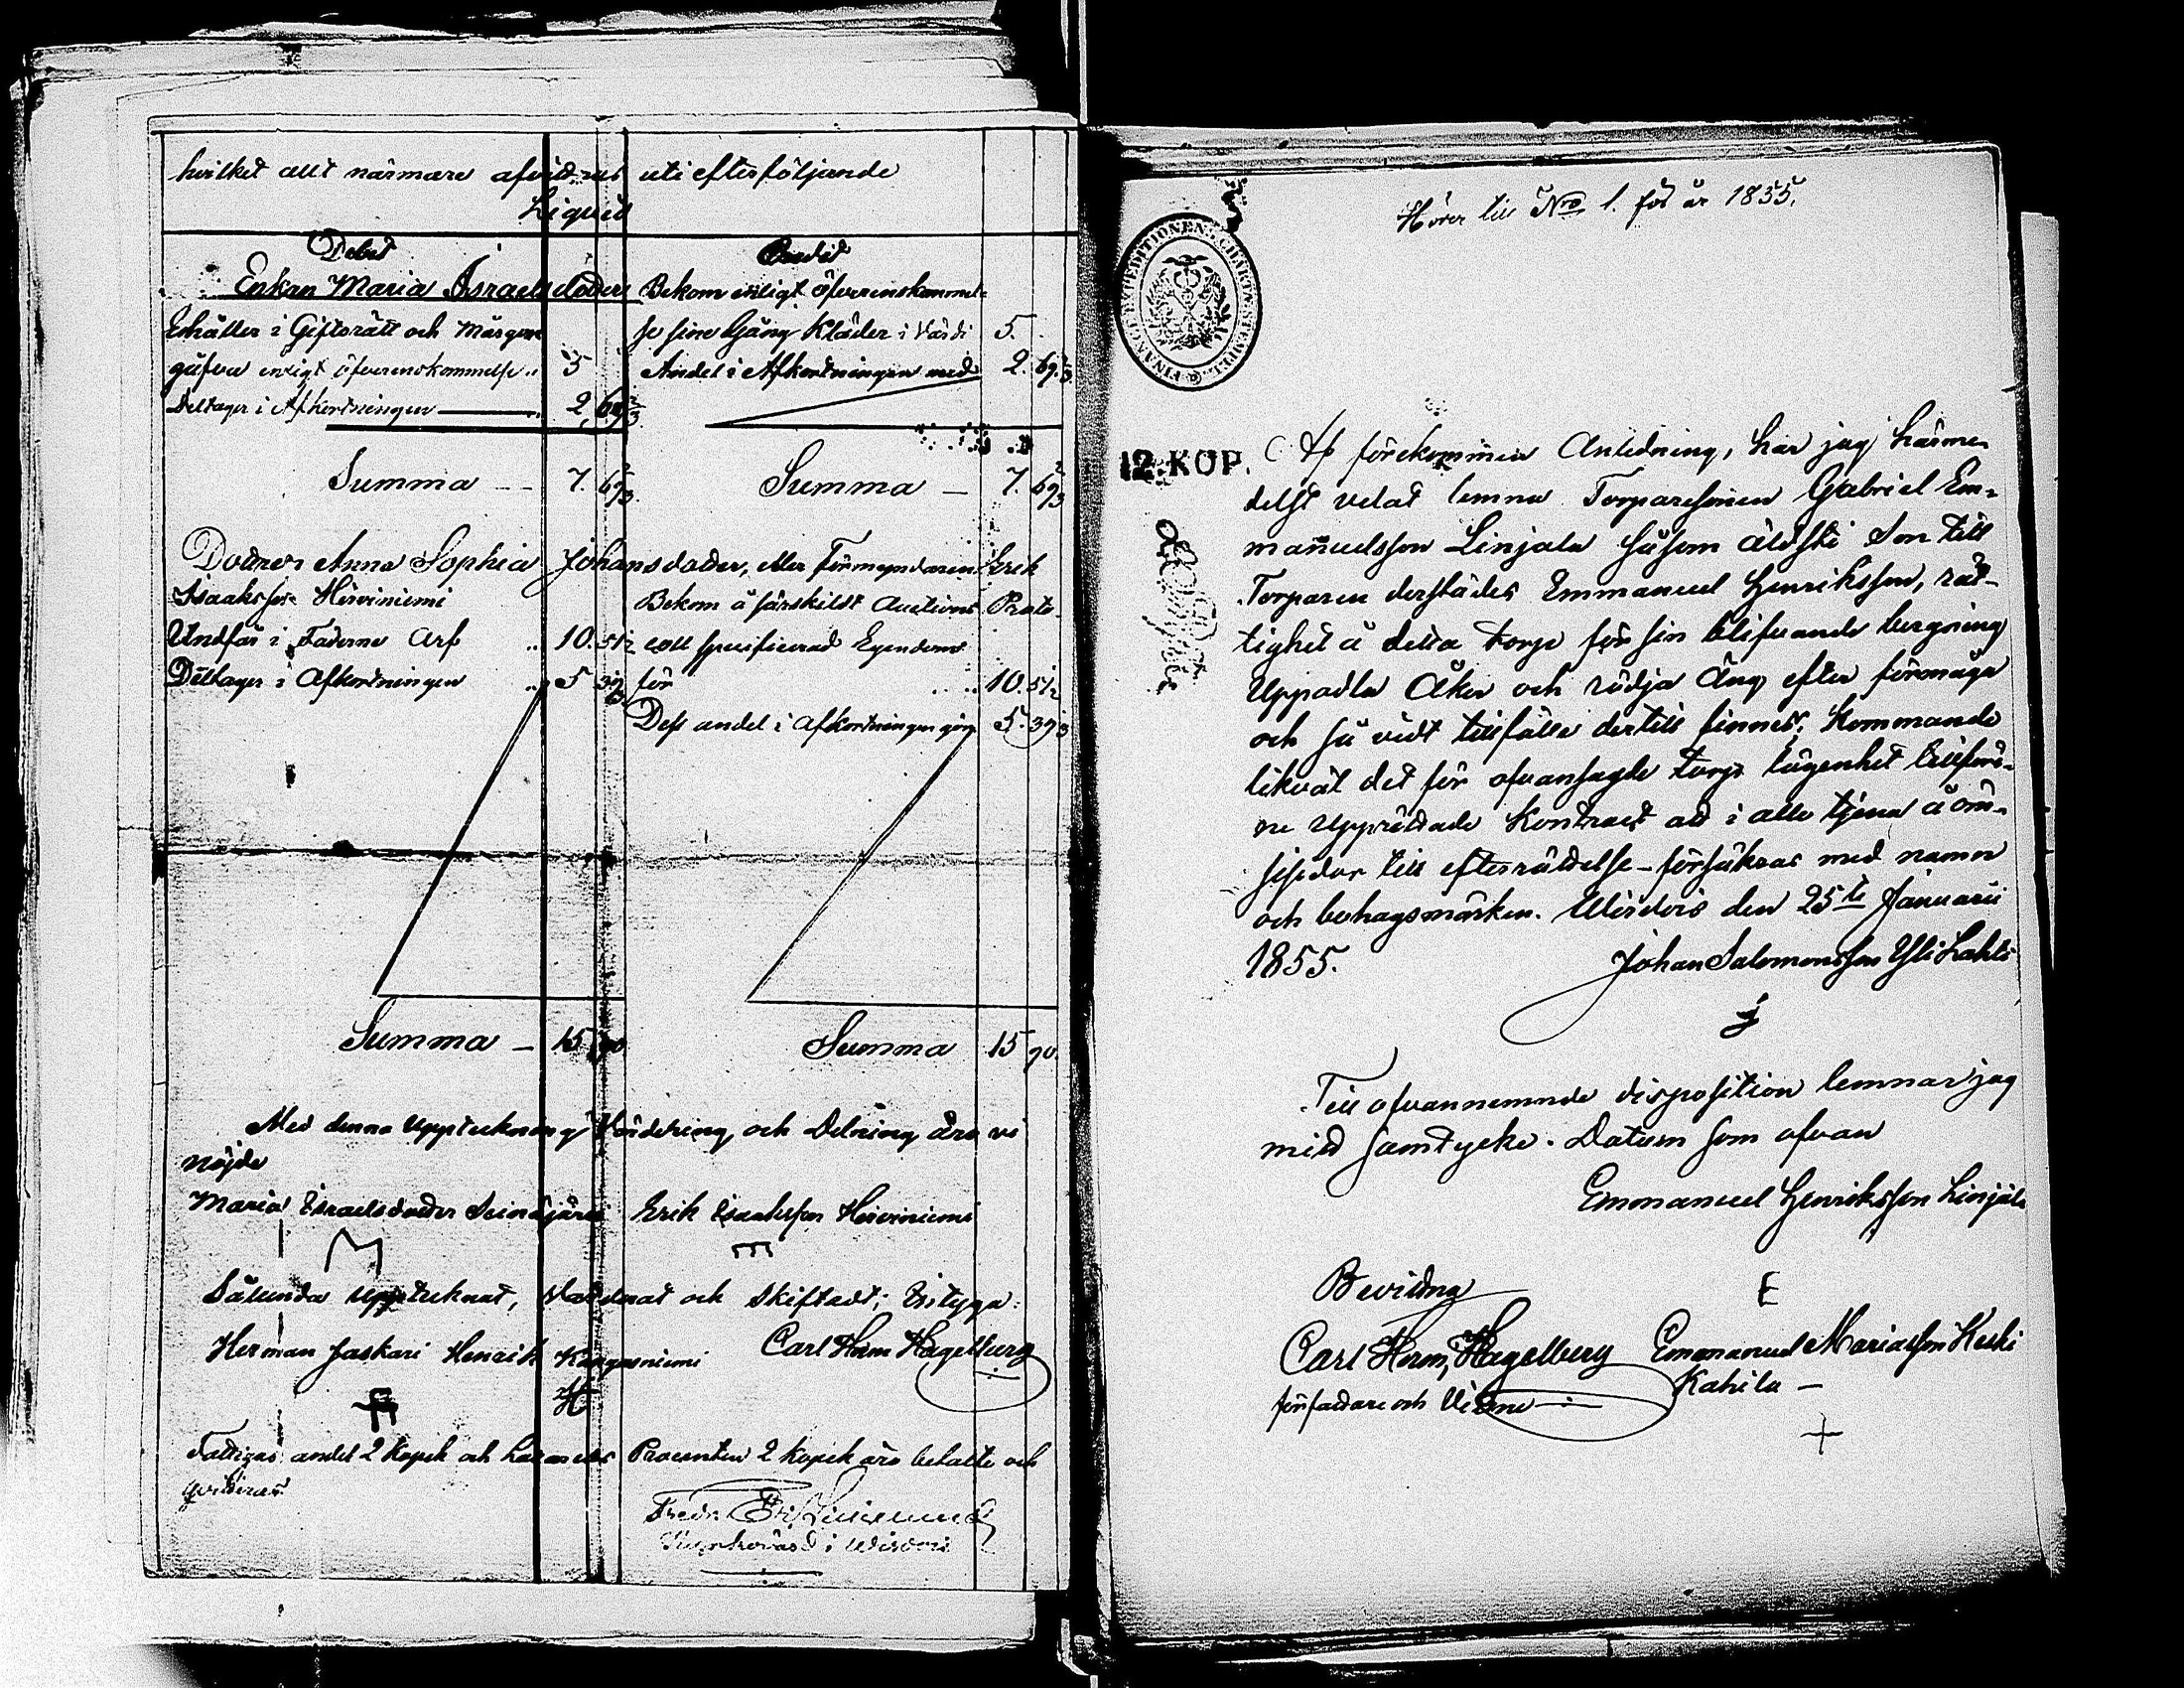 hvilket allt närmare afvittras uti efterföljande
Liqvid
Debet
Enkan Maria Israelsdotter
Erhåller i Giftorätt och Morgon
gåfva enligt öfverenskommelse „ 5
Deltager i Afkortningen 2, 69 2/3
Summa — 7. 69 2/3
Credit
Bekom enligt öfverenskommel-
se sine Gång Kläder i Värdi 5.
Andel i Afkortningen med 2. 69 2/3
Summa — 7. 69 2/3
Dottren Anna Sophia Johansdotter, eller Förmyndaren Erik
Isaaksson Hirviniemi
Undfår i Faderne Arf „ 10. 51 1/2
Deltager i Afkortningen „ 5 39 1/3
Summa — 15 90
Bekom å särskildt Auctions Proto-
coll specificerad Egendom
för 10. 51 1/2
Dess andel i Afkortningen gör 5. 39 1/3
Summa 15 90.
Med denna Uppteckning Värdering och Delning äro vi
nöjde
Maria Israelsdotter Seinäjärvi Erik Isaaksson Hirviniemi
M
Sålunda upptecknat, Värderat och Skiftadt; Betyga:
Herman Jaskari Henrik Kangasniemi Carl Herm Hagelberg
H
Fattigas andel 2 Kopek och Procenten 2 Kopek äro betalte och
qvitteras
Fredr
i Wirdois
Hörer till Nro 1. för år 1855.
FINANCE EXPEDITIONENS CHARTÆ STEMPEL
12 KOP.
Af förekommen Anledning, har jag härme-
delst velat lemna Torparesonen Gabriel Em-
manuelsson Linjala såsom äldste Son till
Torparen derstädes Emmanuel Henriksson, rät-
tighet å detta Torp för sin blifvande bergning
Uppodla Åker och rödja Äng efter förmåga
och så vidt tillfälle dertill finnes; Kommande
likväl det för ofvansagde torps lägenhet tillföre-
ne Upprättade Kontract att i allo tjena å öm-
sesidor till efterrättelse – försäkras med namn
och bohagsmärken. Wirdois den 25te Januarii
1855. Johan Salomonsson Yli Lahti
Till ofvannemnde disposition lemnar jag
mitt samtycke. Datum som ofvan
Emmanuel Henriksson Linjala
E
Bevittna
Carl Herm, Hagelberg Emmanuel Mariasson Keski
författare och Vittne Kahila —
+